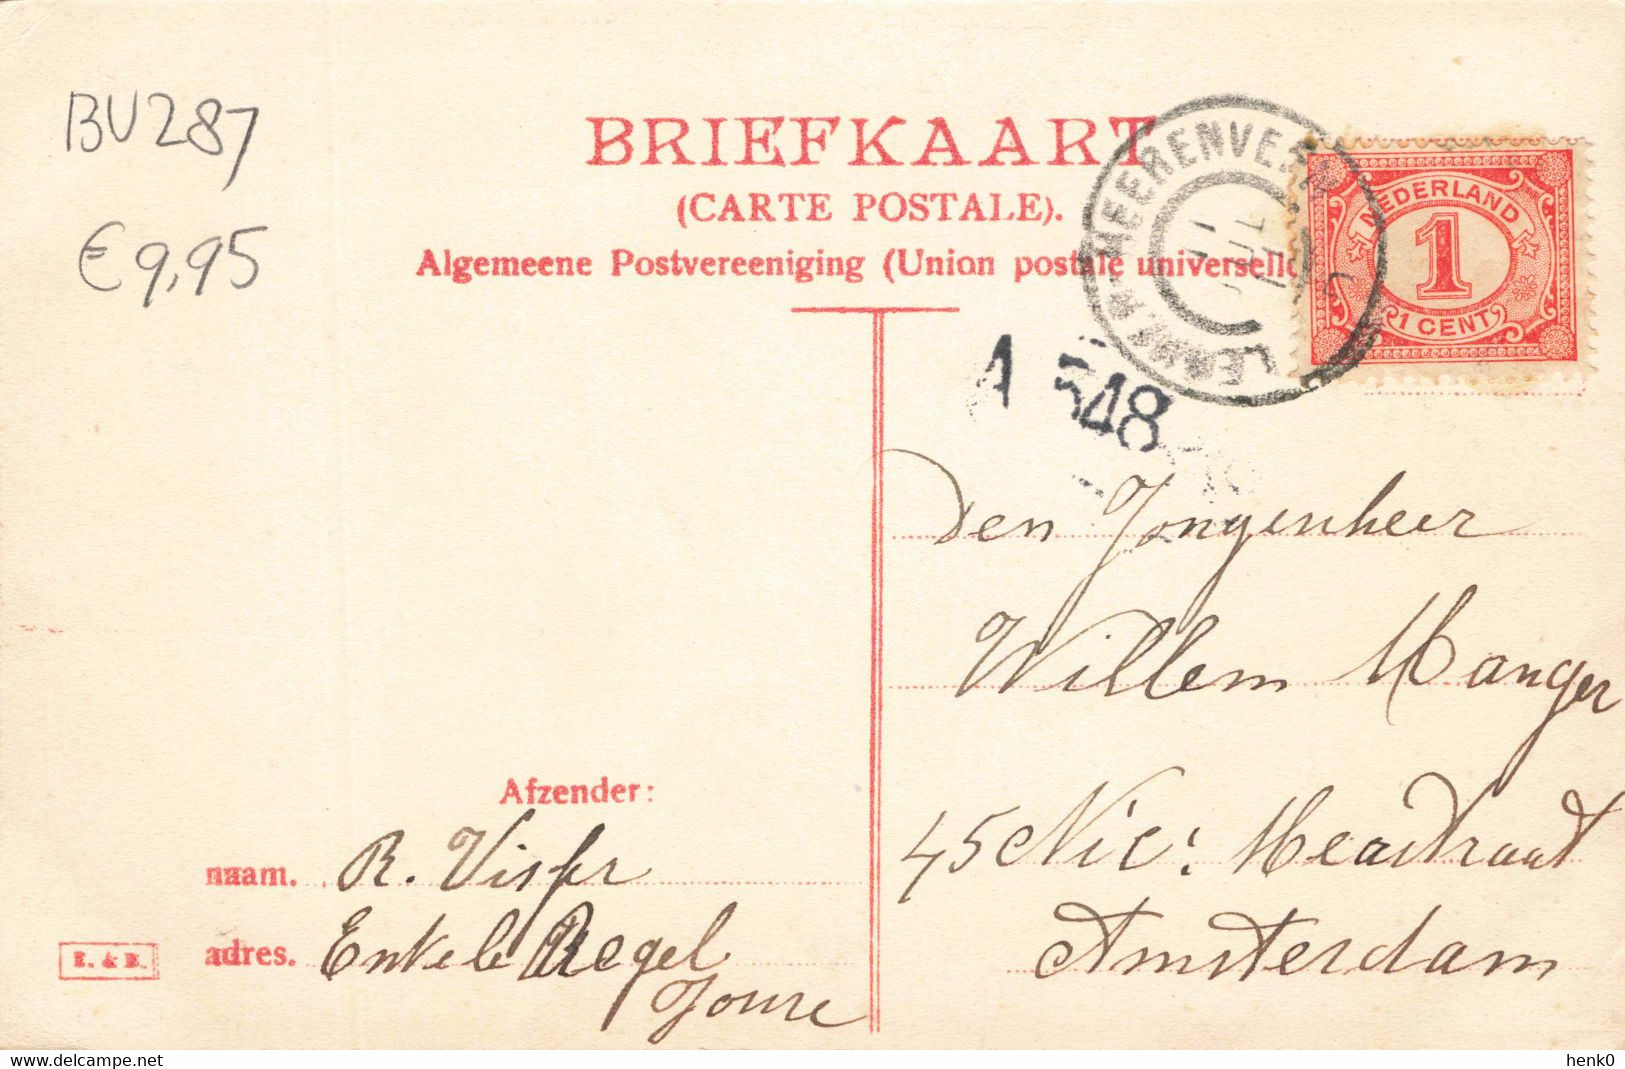 BU287
€9,95
BRIEFKAART
(CARTE POSTALE).
Algemeene Postvereeniging (Union postale universelle
HEERENVEEN
NEDERLAND
1
1 CENT
1 548
Den Jongenheer
Willem Manger
45 Nic:
Amsterdam
Afzender:
naam. R. Visser
adres. Enkele Regel
Joure
delcampe.net
henk0